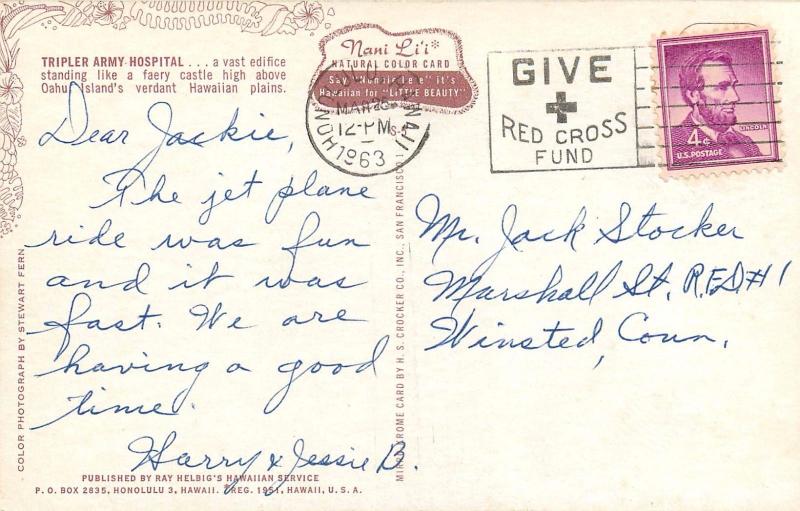 TRIPLER ARMY HOSPITAL . . . a vast edifice
standing like a faery castle high above
Oahu Island's verdant Hawaiian plains.
Nani Li'i*
NATURAL COLOR CARD
Say "Nonie-lee-ee" it's
Hawaiian for "LITTLE BEAUTY"
HONOLULU HAWAII
MAR 26
12-PM
1963
GIVE
RED CROSS
FUND
LINCOLN
4¢
U.S. POSTAGE
Dear Jackie,
The jet plane
ride was fun
and it was
fast. We are
having a good
time.
Harry & Jessie B.
Mr. Jack Stocker
Marshall St. R.F.D.#1
Winsted, Conn.
COLOR PHOTOGRAPH BY STEWART FERN
MIRRO-KROME CARD BY H. S. CROCKER CO., INC., SAN FRANCISCO 1
PUBLISHED BY RAY HELBIG'S HAWAIIAN SERVICE
P. O. BOX 2835, HONOLULU 3, HAWAII. *REG. 1951, HAWAII, U. S. A.